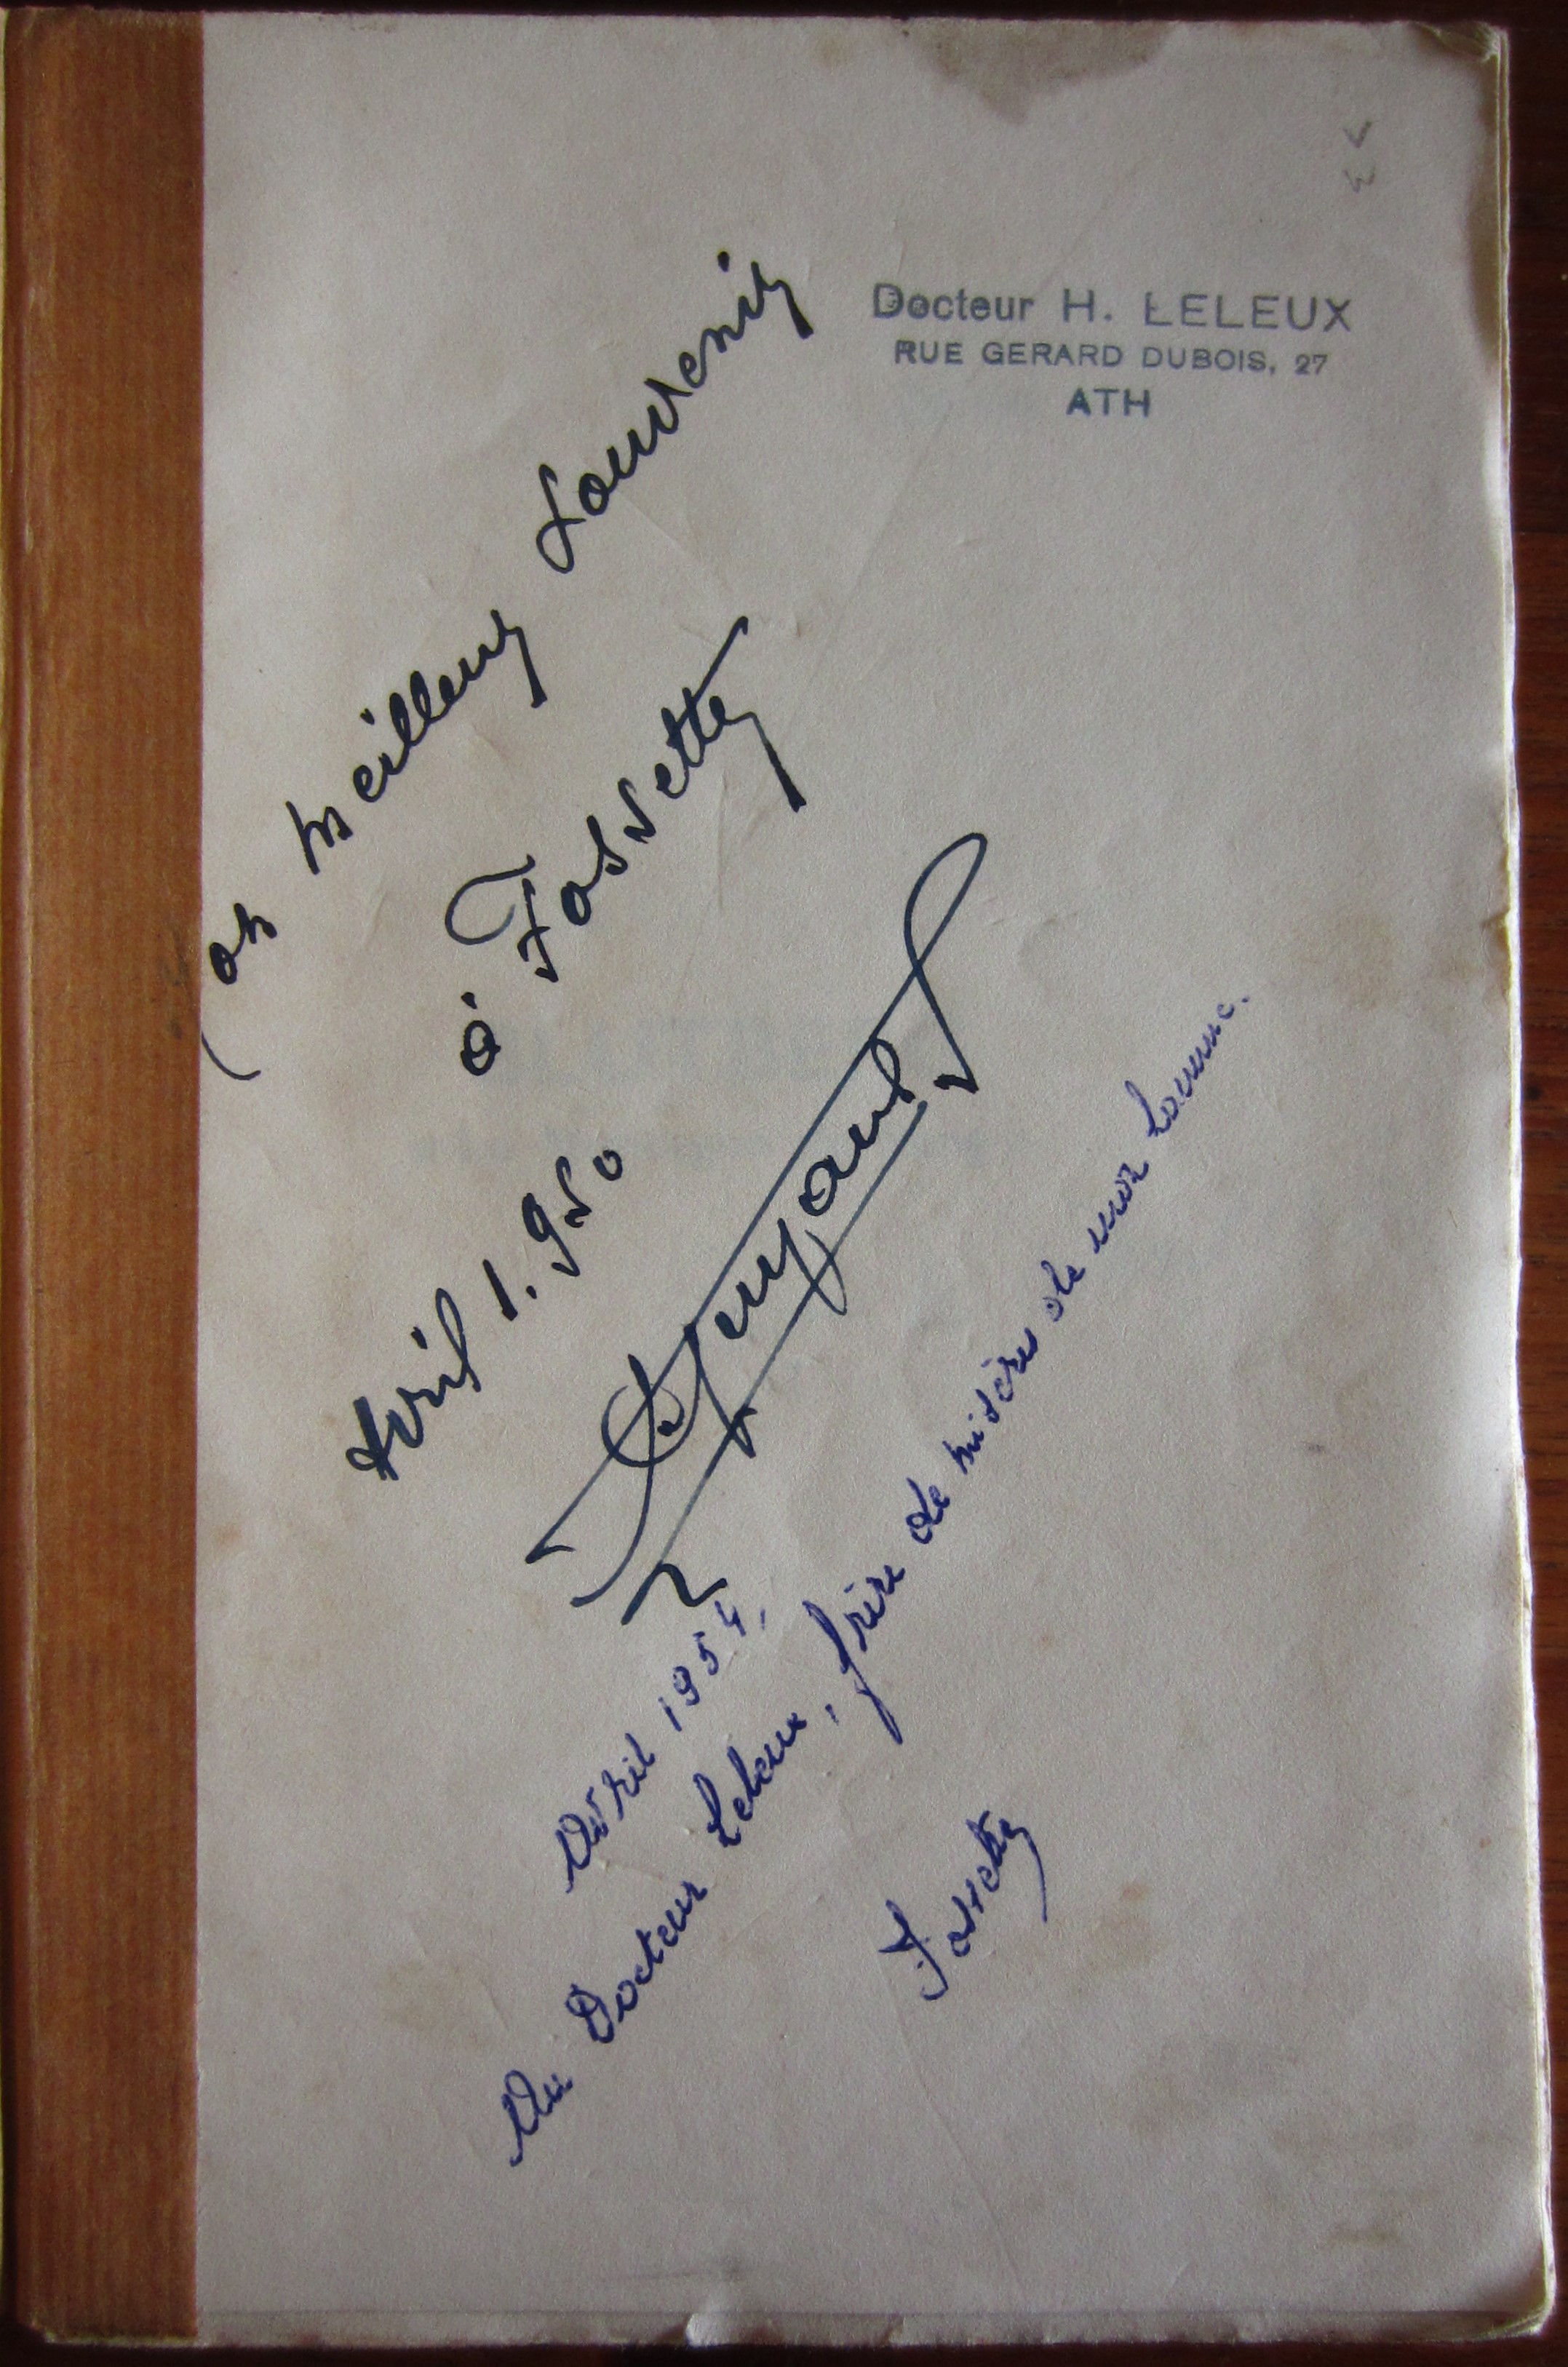 Docteur H. LELEUX
RUE GERARD DUBOIS, 27
ATH
meilleurs souvenirs
à Fossette
Avril 1.950
Avril 1954,
Au Docteur Leleux, frère de misère de mon homme.
Fossette